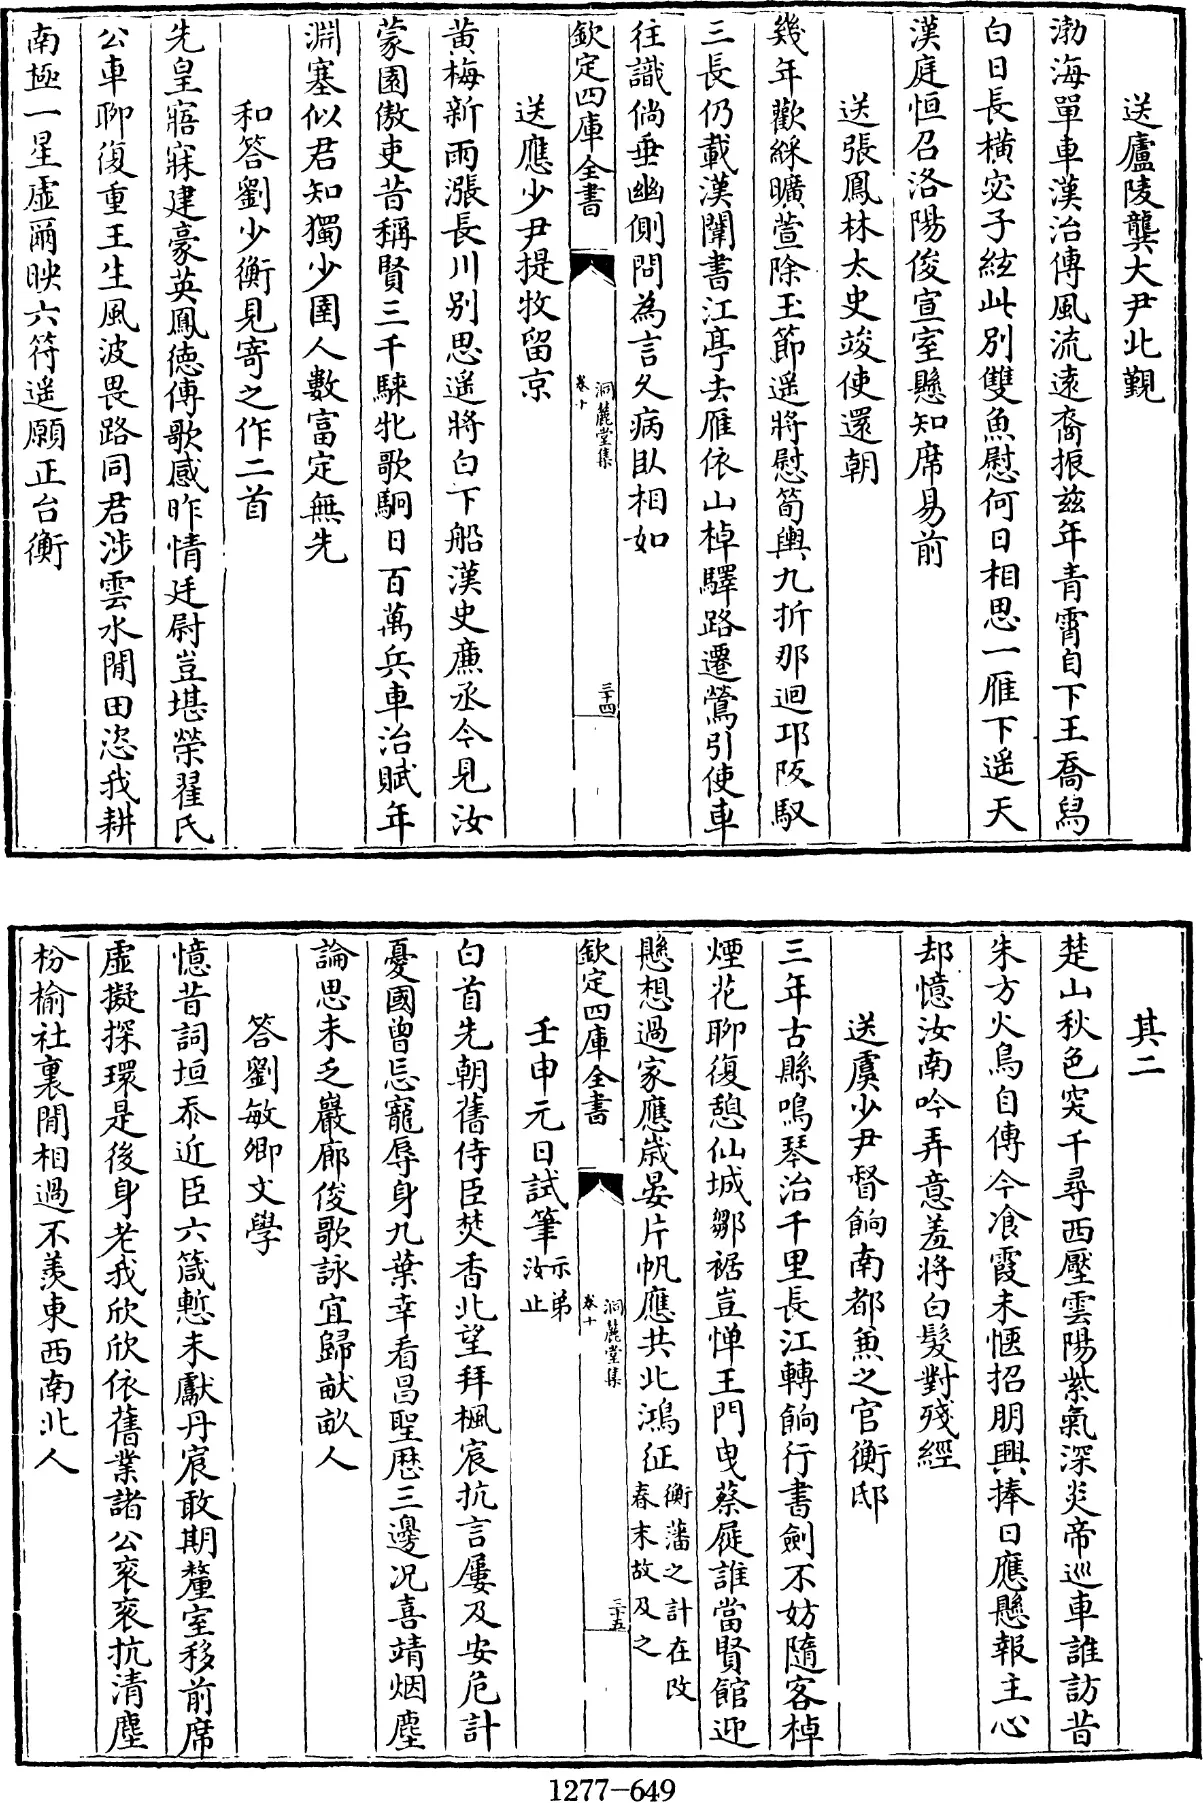 送廬陵龔大尹北覲
渤海單車漢治傳風流遠裔振兹年青霄自下王喬舄
白日長横宓子絃此别雙魚慰何日相思一雁下遥天
漢庭恒召洛陽俊宣室懸知席易前
送張鳳林太史竣使還朝
幾年歡綵曠萱除玉節遥將慰筍輿九折那迴邛阪馭
三長仍載漢闈書江亭去雁依山棹驛路遷鶯引使車
往識倘垂幽側問為言久病臥相如
欽定四庫全書
洞麓堂集
卷十
三十四
送應少尹提牧留京
黄梅新雨漲長川别思遥將白下船漢史廉丞今見汝
蒙園傲吏昔稱賢三千騋牝歌駉日百萬兵車治賦年
淵塞似君知獨少圉人數富定無先
和答劉少衡見寄之作二首
先皇寤寐建豪英鳳德傳歌感昨情廷尉豈堪榮翟氏
公車聊復重王生風波畏路同君涉雲水閒田恣我耕
南極一星虚爾映六符遥願正台衡
其二
楚山秋色突千尋西壓雲陽紫氣深炎帝巡車誰訪昔
朱方火鳥自傳今飡霞未愜招朋興捧日應懸報主心
却憶汝南吟弄意羞將白髮對殘經
送虞少尹督餉南都兼之官衡邸
三年古縣鳴琴治千里長江轉餉行書劍不妨隨客棹
煙花聊復憩仙城鄒裾豈憚王門曳蔡屣誰當賢館迎
懸想過家應嵗晏片帆應共北鴻征衡藩之計在改
春末故及之
欽定四庫全書
洞麓堂集
卷十
三十五
壬申元日試筆示弟
汝止
白首先朝舊侍臣焚香北望拜楓宸抗言屢及安危計
憂國曾忘寵辱身九葉幸看昌聖歴三邊况喜靖烟塵
論思未乏巖廊俊歌詠宜歸畎畝人
答劉敏卿文學
憶昔詞垣忝近臣六箴慙未獻丹宸敢期釐室移前席
虚擬探環是後身老我欣欣依舊業諸公衮衮抗清塵
枌榆社裏閒相過不羨東西南北人
1277-649